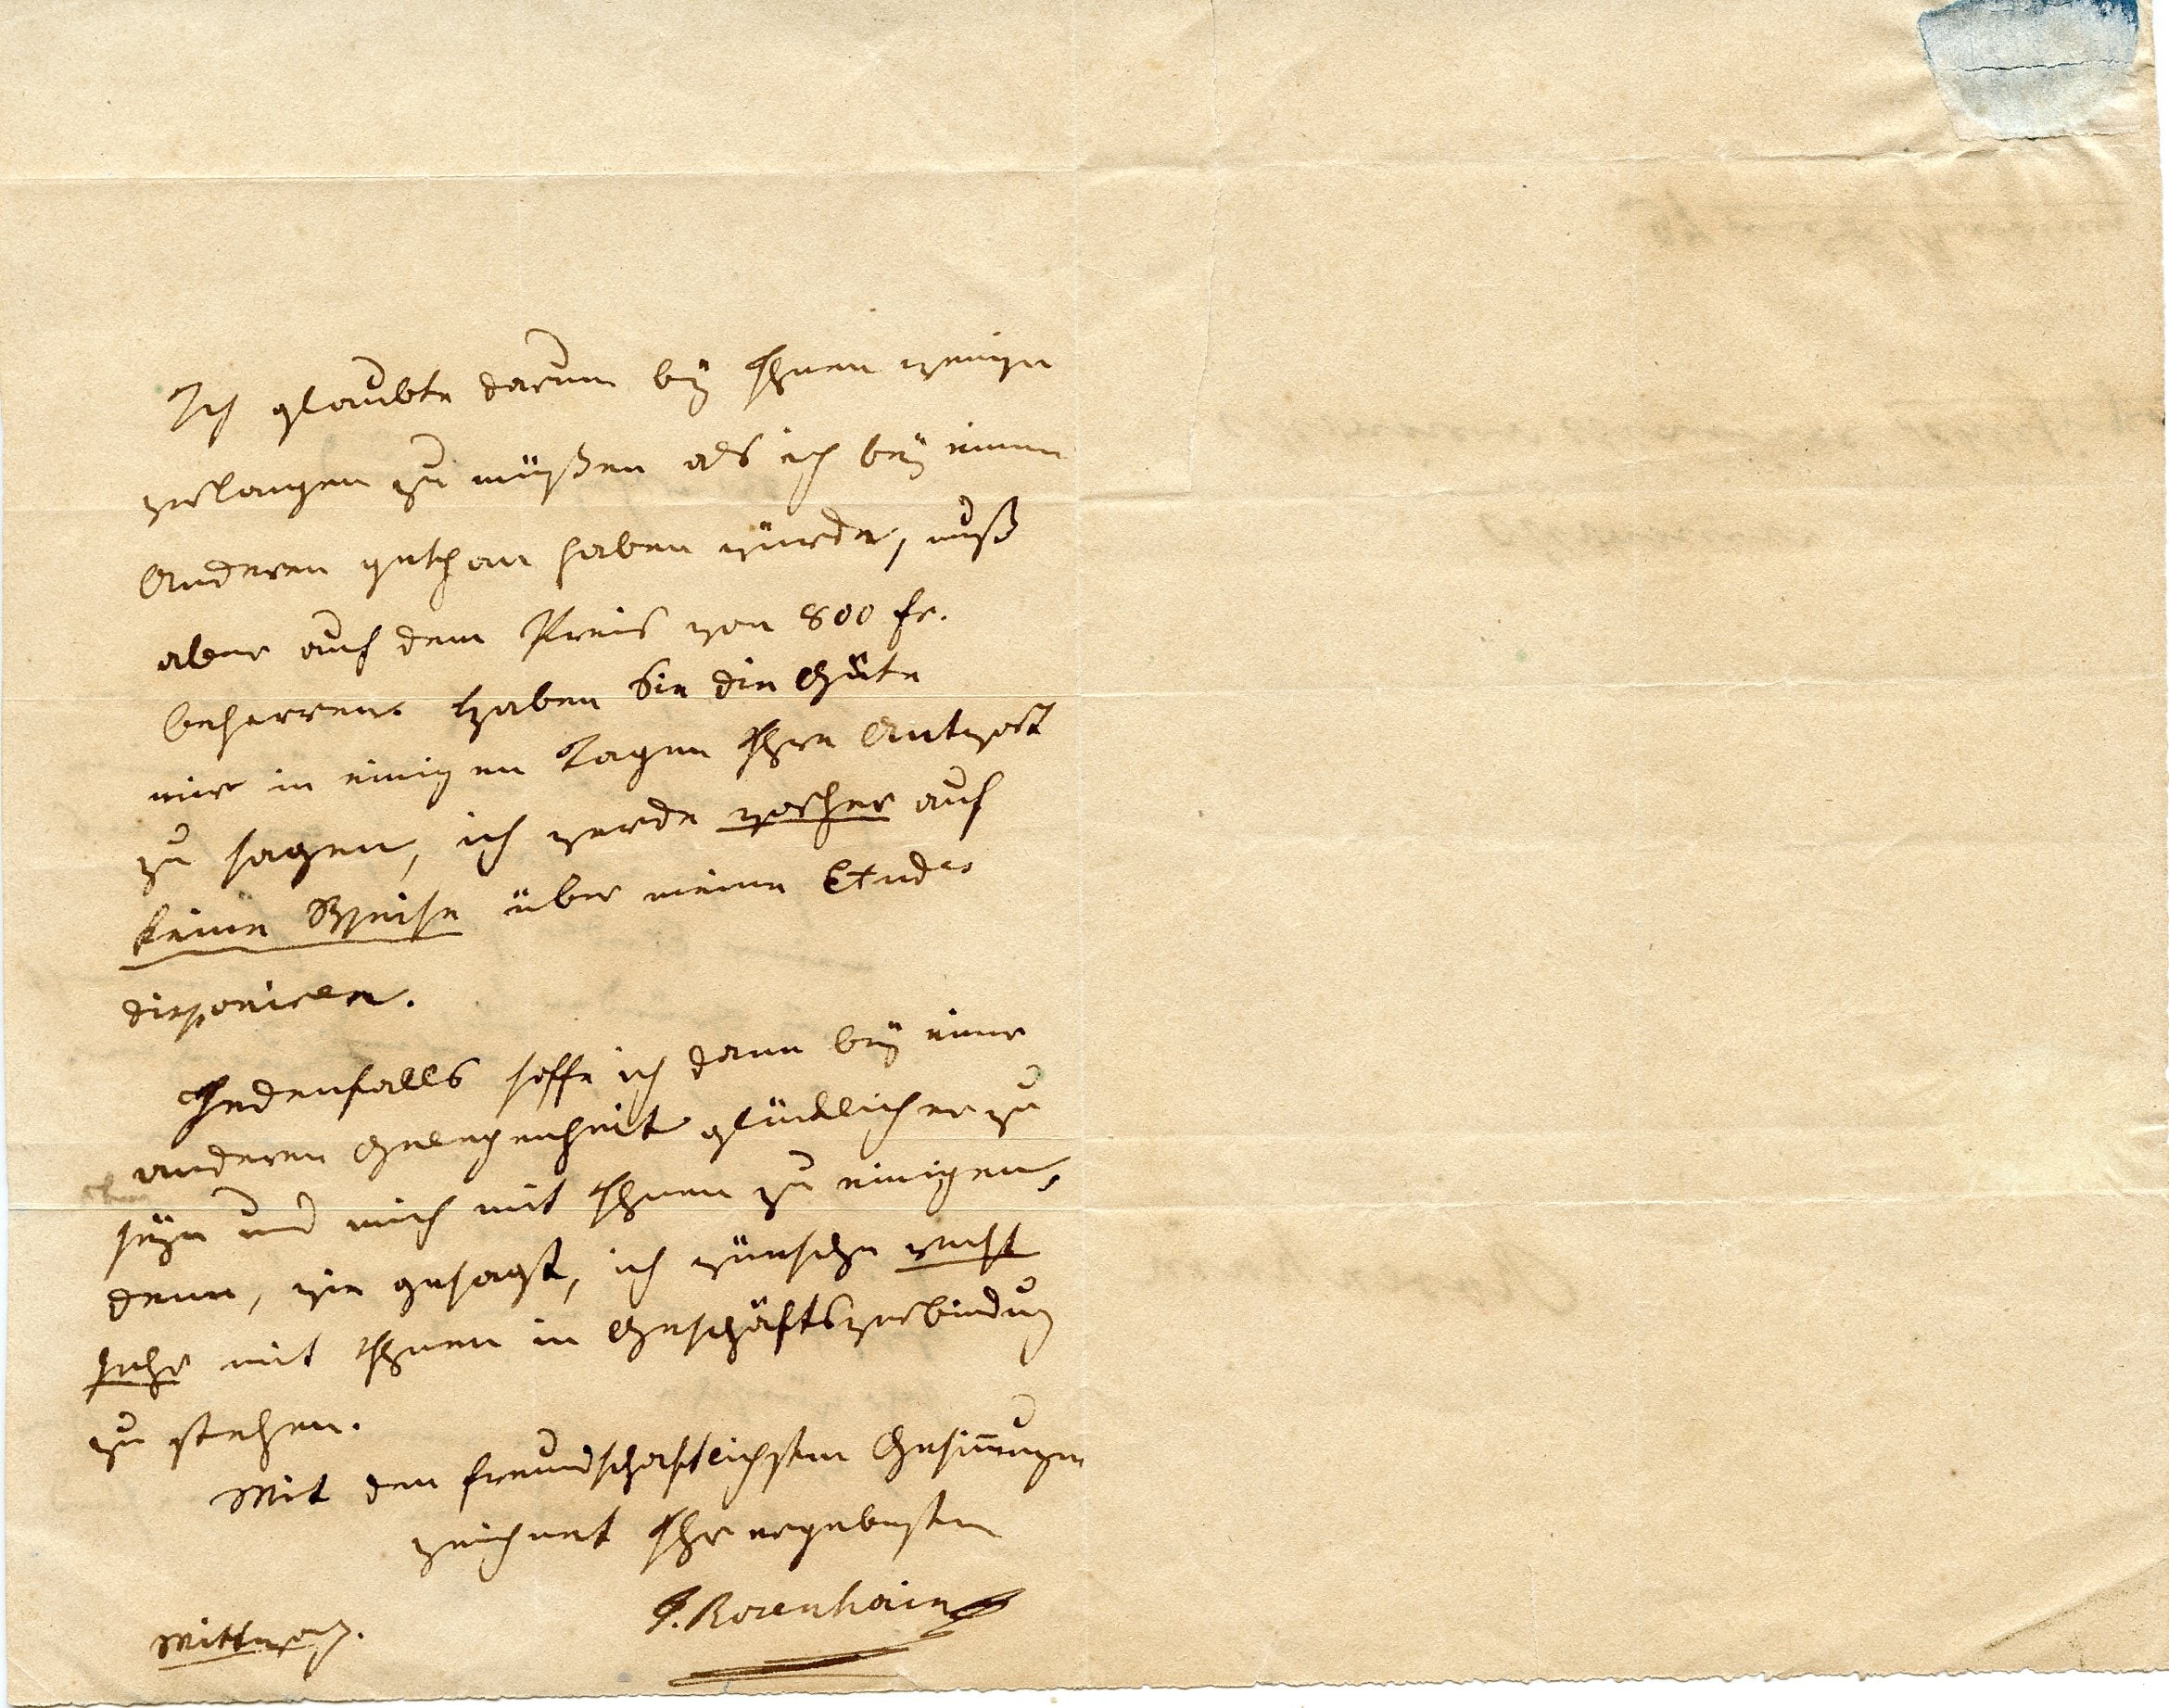 Ich glaubte darum bey Ihnen weniger
verlangen zu müßen als ich bey einem
Anderen gethan haben würde, muß
aber auf dem Preis von 800 fr.
beharren. Haben Sie die Güte
mir in einigen Tagen Ihre Antwort
zu sagen, ich werde vorher auf
keine Weise über meine Etudes
disponiren.
Jedenfalls hoffe ich dann bey einer
anderen Gelegenheit glücklicher zu
seyn und mich mit Ihnen zu einigen,
denn, wie gesagt, ich wünsche recht
sehr mit Ihnen in Geschäftsverbindung
zu stehen.
Mit den freundschaftlichsten Gesinnungen
zeichnet Ihr ergebenster
J. Rosenhain
Mittwoch.